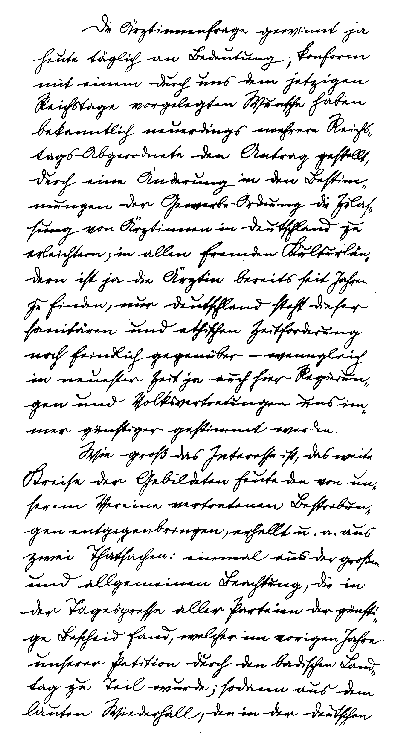 Die Ärztinnenfrage gewinnt ja
heute täglich an Bedeutung; konform
mit einem durch uns dem jetzigen
Reichstage vorgelegten Wunsche haben
bekanntlich neuerdings mehrere Reichs-
tags-Abgeordnete den Antrag gestellt,
durch eine Änderung in den Bestim-
mungen der Gewerbe-Ordnung die Zulas-
sung von Ärztinnen in Deutschland zu
erleichtern; in allen fremden Kulturlän-
dern ist ja die Ärztin bereits seit Jahren
zu finden, nur Deutschland steht dieser
sanitären und ethischen Zeitforderung
noch feindlich gegenüber – wenngleich
in neuester Zeit ja auch hier Regierun-
gen und Volksvertretungen uns im-
mer günstiger gestimmt werden.
Wie groß das Interesse ist, das weite
Kreise der Gebildeten heute den von un-
serem Vereine vertretenen Bestrebun-
gen entgegenbringen, erhellt u. a. aus
zwei Thatsachen: einmal aus der großen
und allgemeinen Beachtung, die in
der Tagespresse aller Parteien der günsti-
ge Bescheid fand, welcher im vorigen Jahre
unserer Petition durch den badischen Land-
tag zu Teil wurde; sodann aus dem
lauten Wiederhall, den in der deutschen